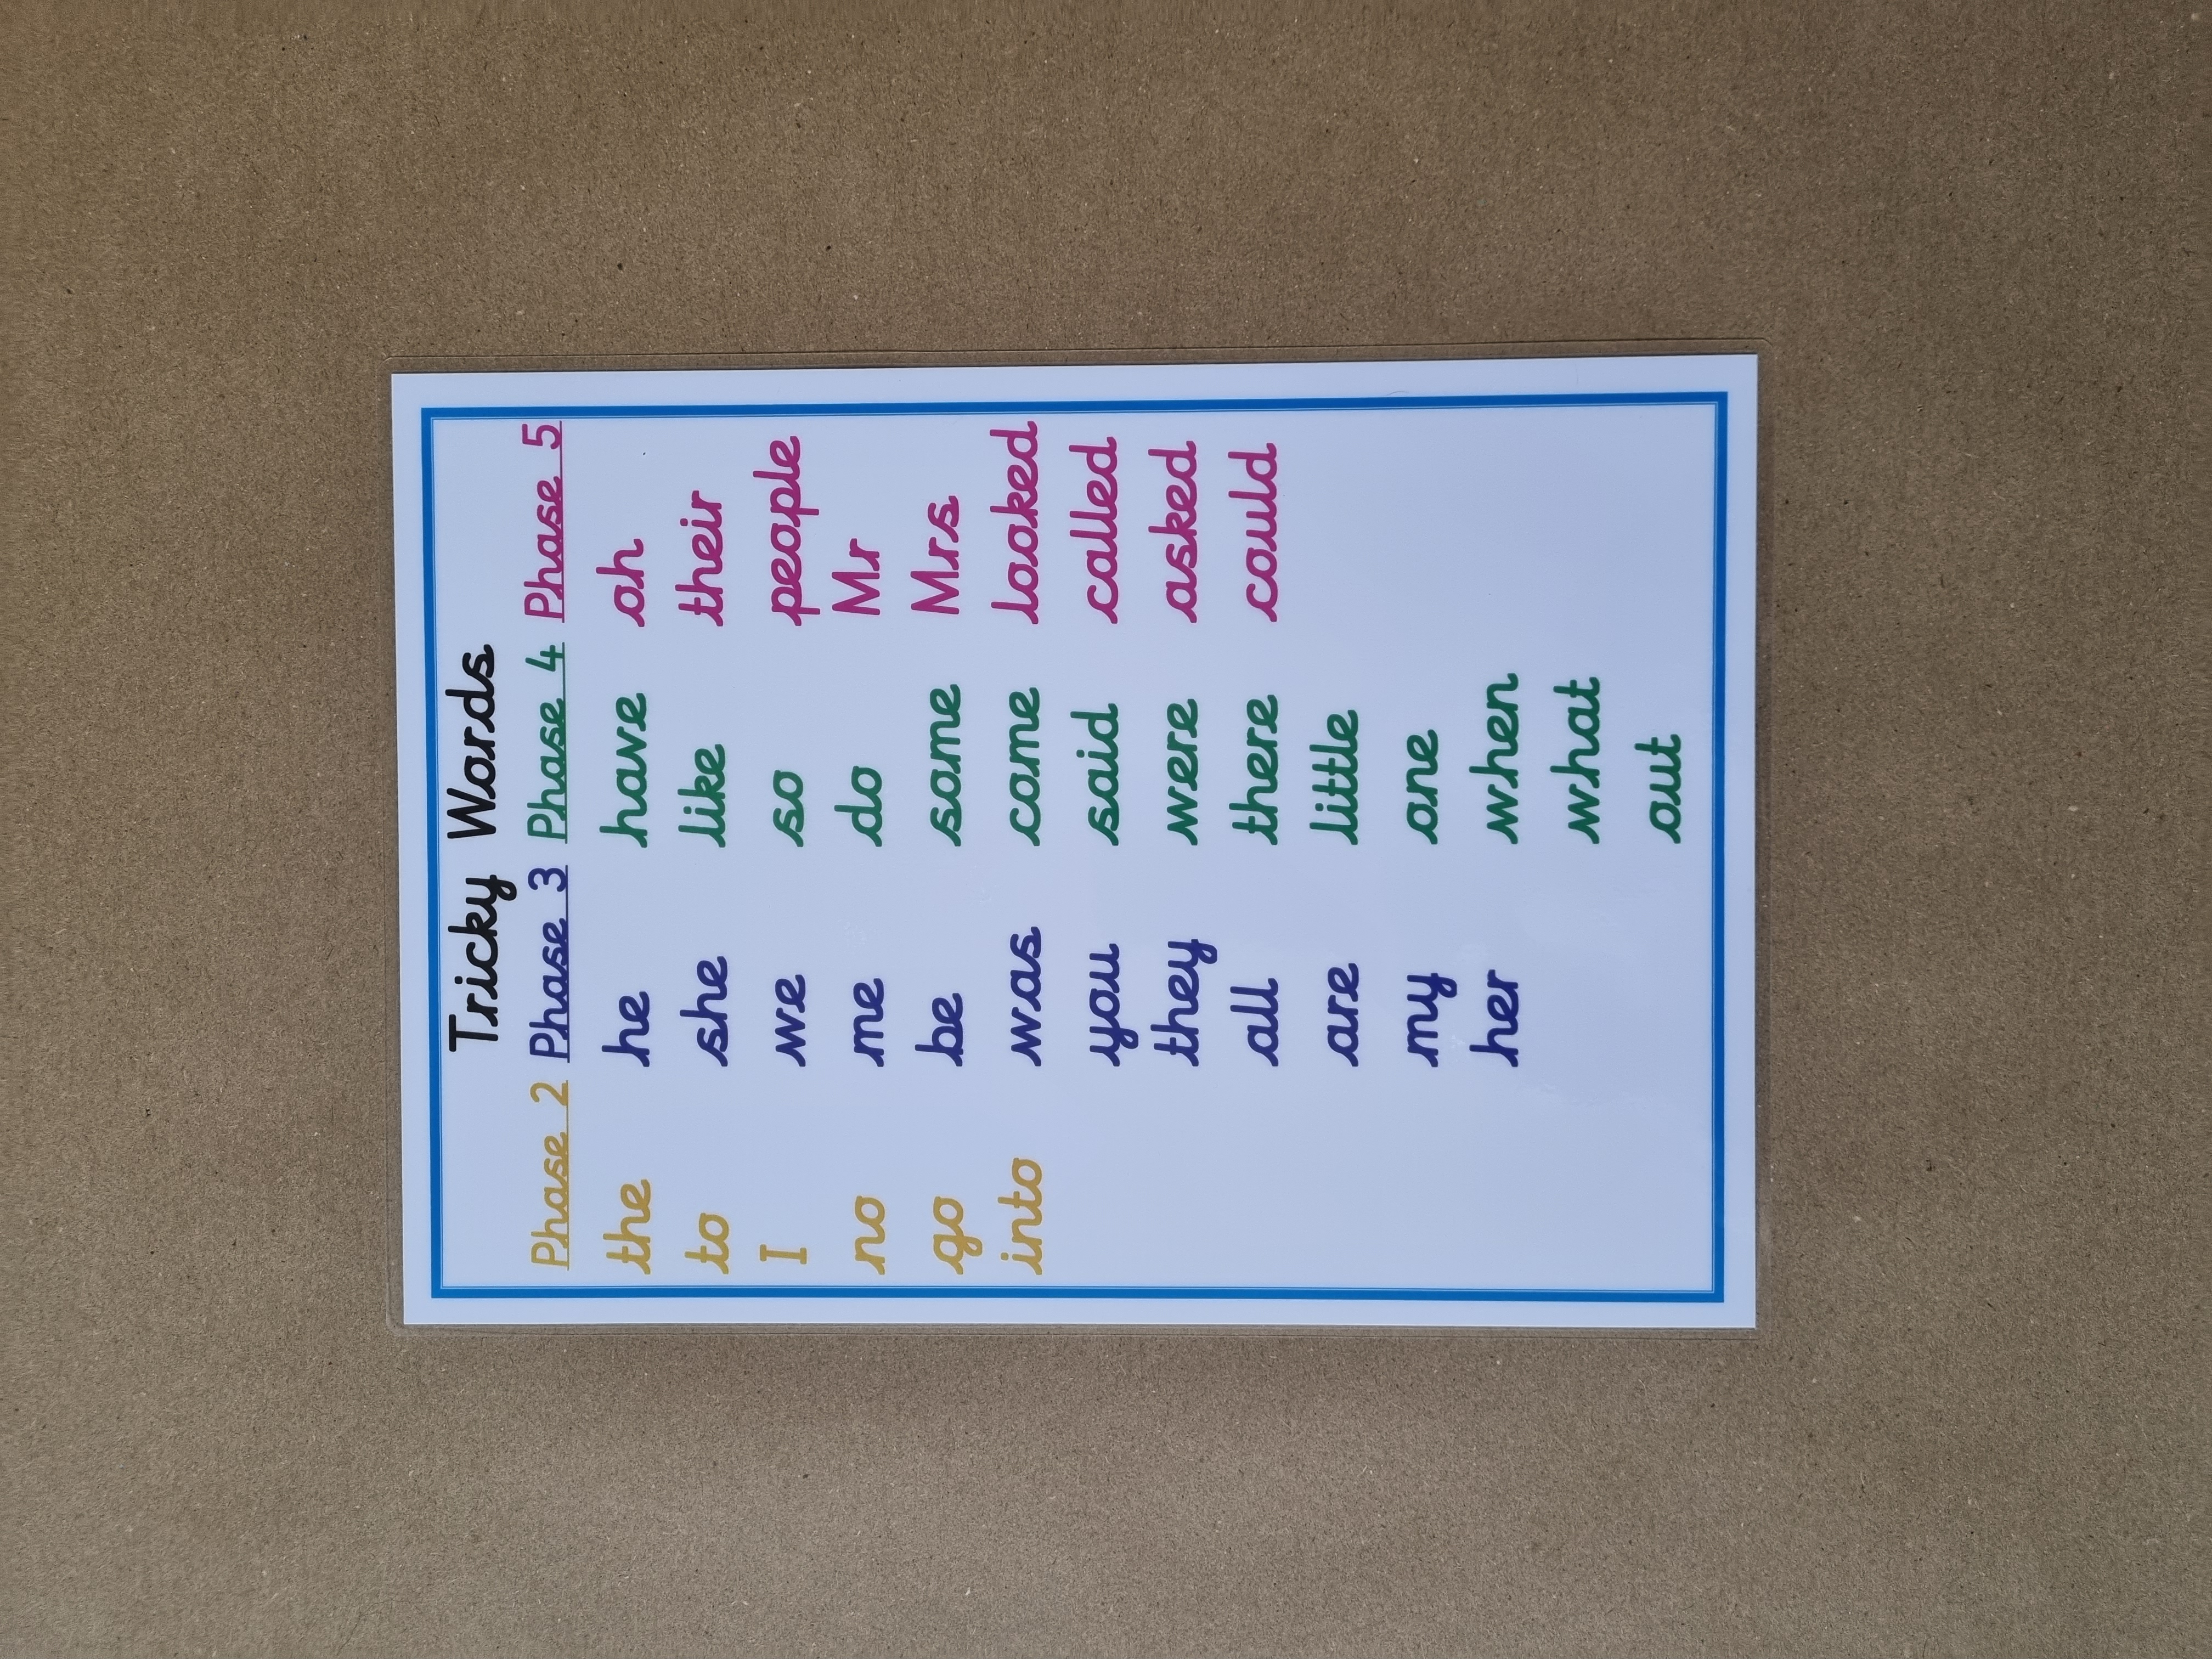 Tricky Words
Phase 2 Phase 3 Phase 4 Phase 5
the he have oh
to she like their
I we so people
no me do Mr
go be some Mrs
into was come looked
you said called
they were asked
all there could
are little
my one
her when
what
out